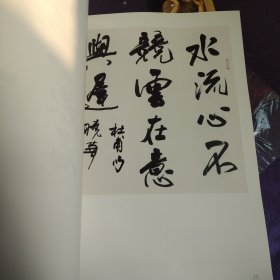 水流心不
競雲在意
與遲
杜甫句
曉